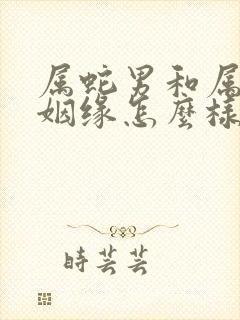 属蛇男和属
姻缘怎麽样
時芸芸